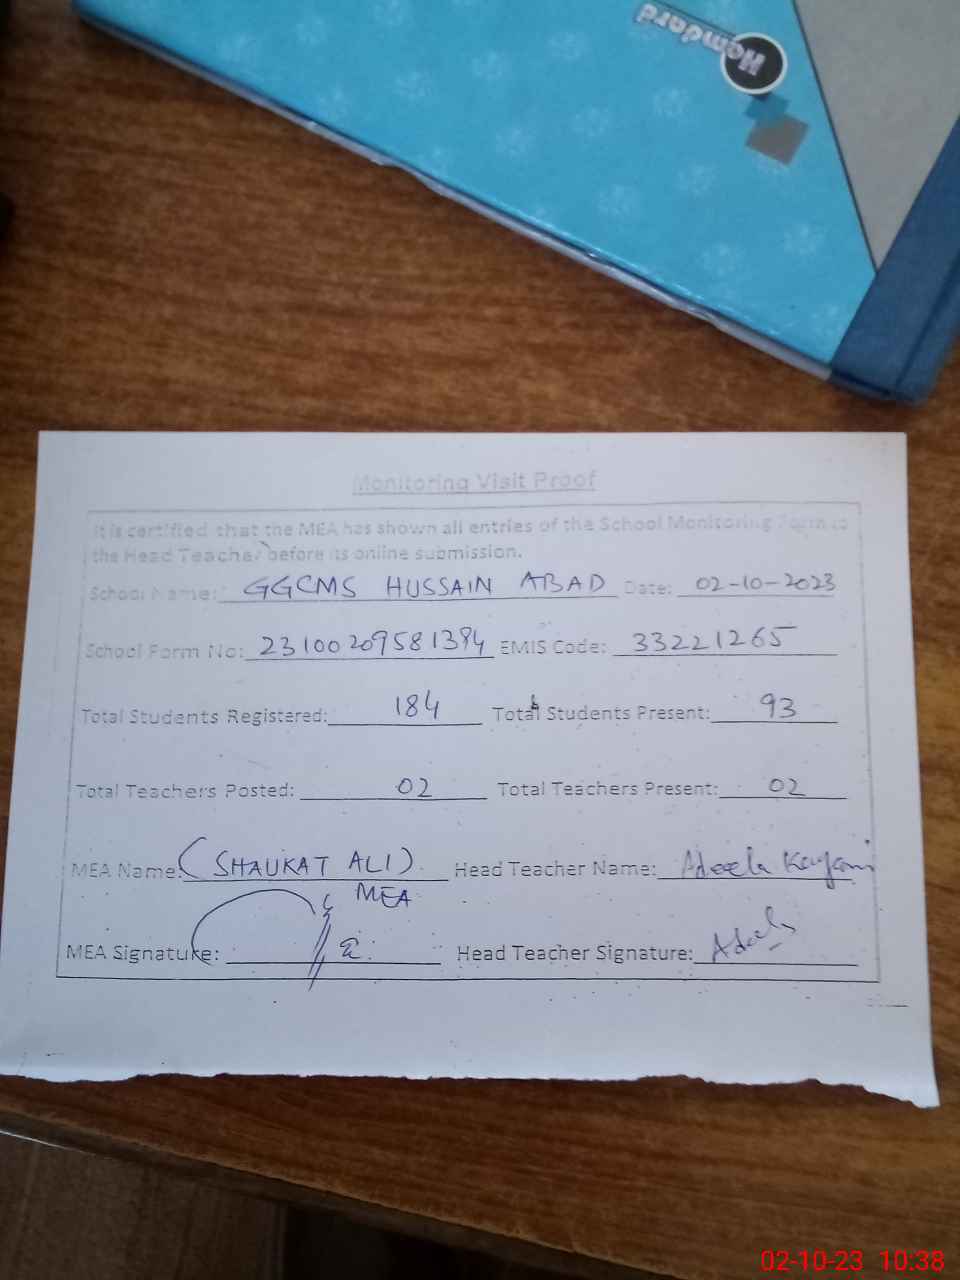 Hamdard
Monitoring Visit Proof
It is certified that the MEA has shown all entries of the School Monitoring Form to
the Head Teacher before its online submission.
School Name: GGCMS HUSSAIN ABAD Date: 02-10-2023
School Form No: 23100209581394 EMIS Code: 33221265
Total Students Registered: 184 Total Students Present: 93
Total Teachers Posted: 02 Total Teachers Present: 02
MEA Name: (SHAUKAT ALI) Head Teacher Name: Adeela Kayani
MEA
MEA Signature: Head Teacher Signature: Adeela
02-10-23 10:38